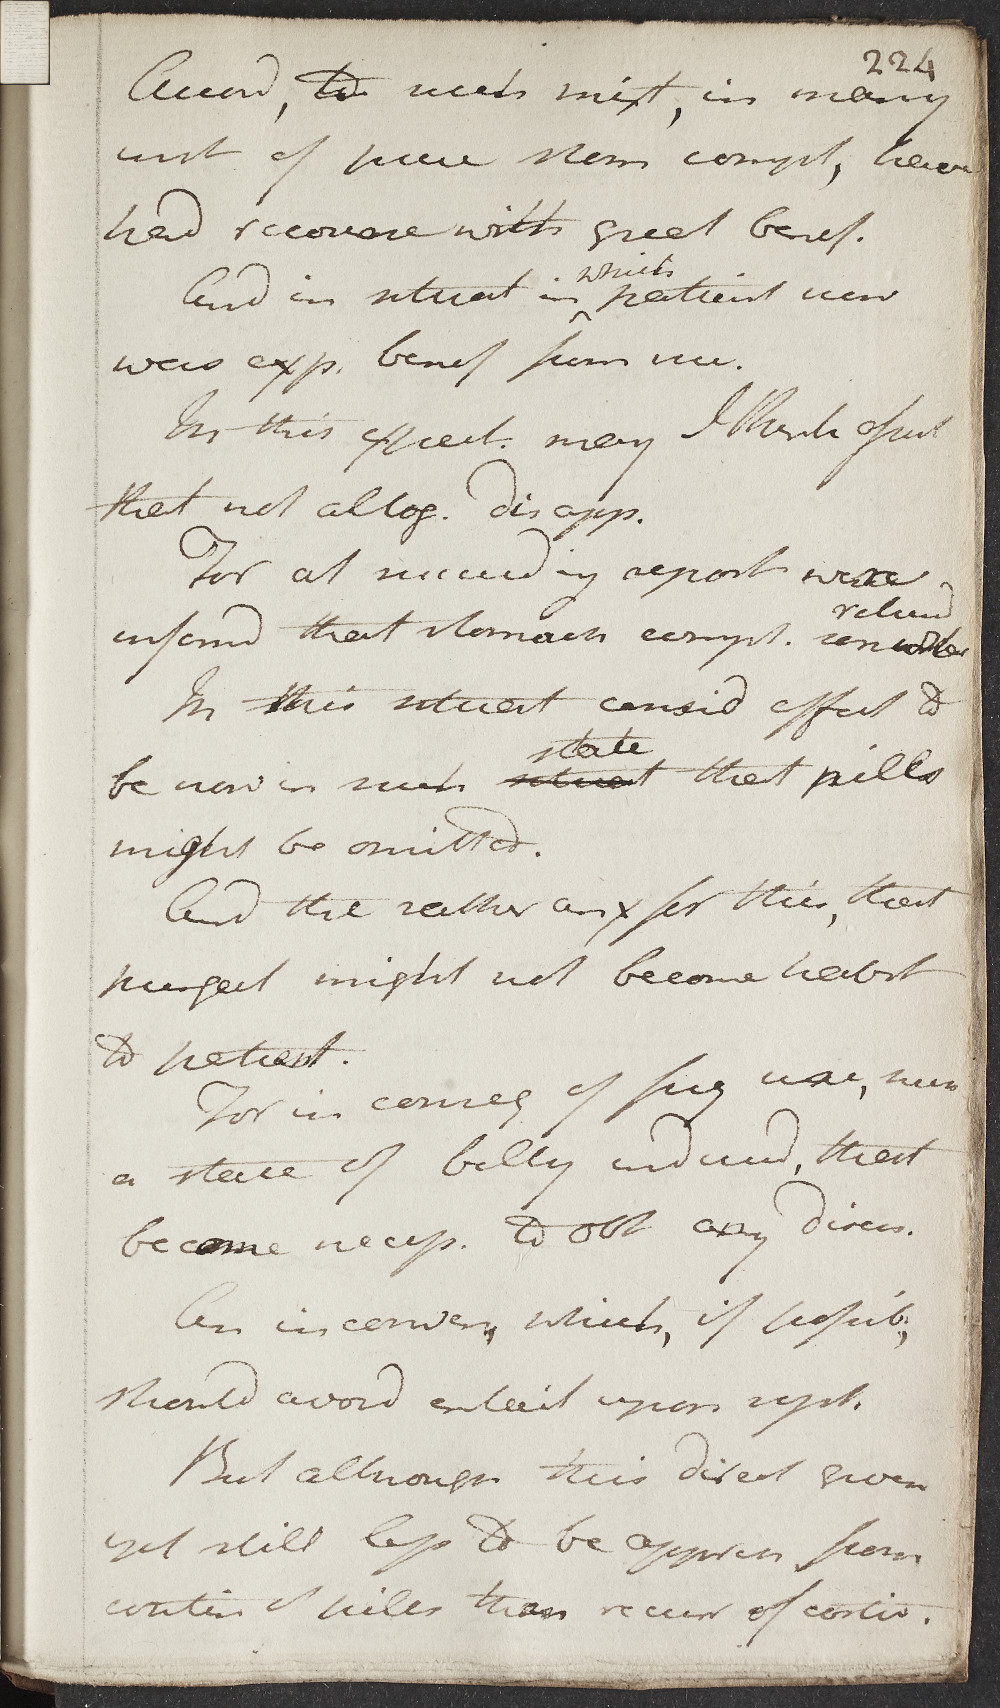 224
Accord, to such mixt, in many
inst of pure stom compl, have
had recourse with great benef.
And in situat in which patient now
was exp. benef from use.
In this expect. may I think assert
that not altog. disapp.
For at succeeding report were
relievd
informd that stomach compl.
In this situat considd effect to
be now in such state that pills
might be omitted.
And the rather anx for this, that
purgat might not become habit
to patient.
For in conseq of freq use, such
a state of belly inducd, that
become necess. to obt any disch.
An inconven, which, if possib,
should avoid entail upon syst.
But although this direct given
yet still less to be appreh from
contin of pills than recurr of costiv.